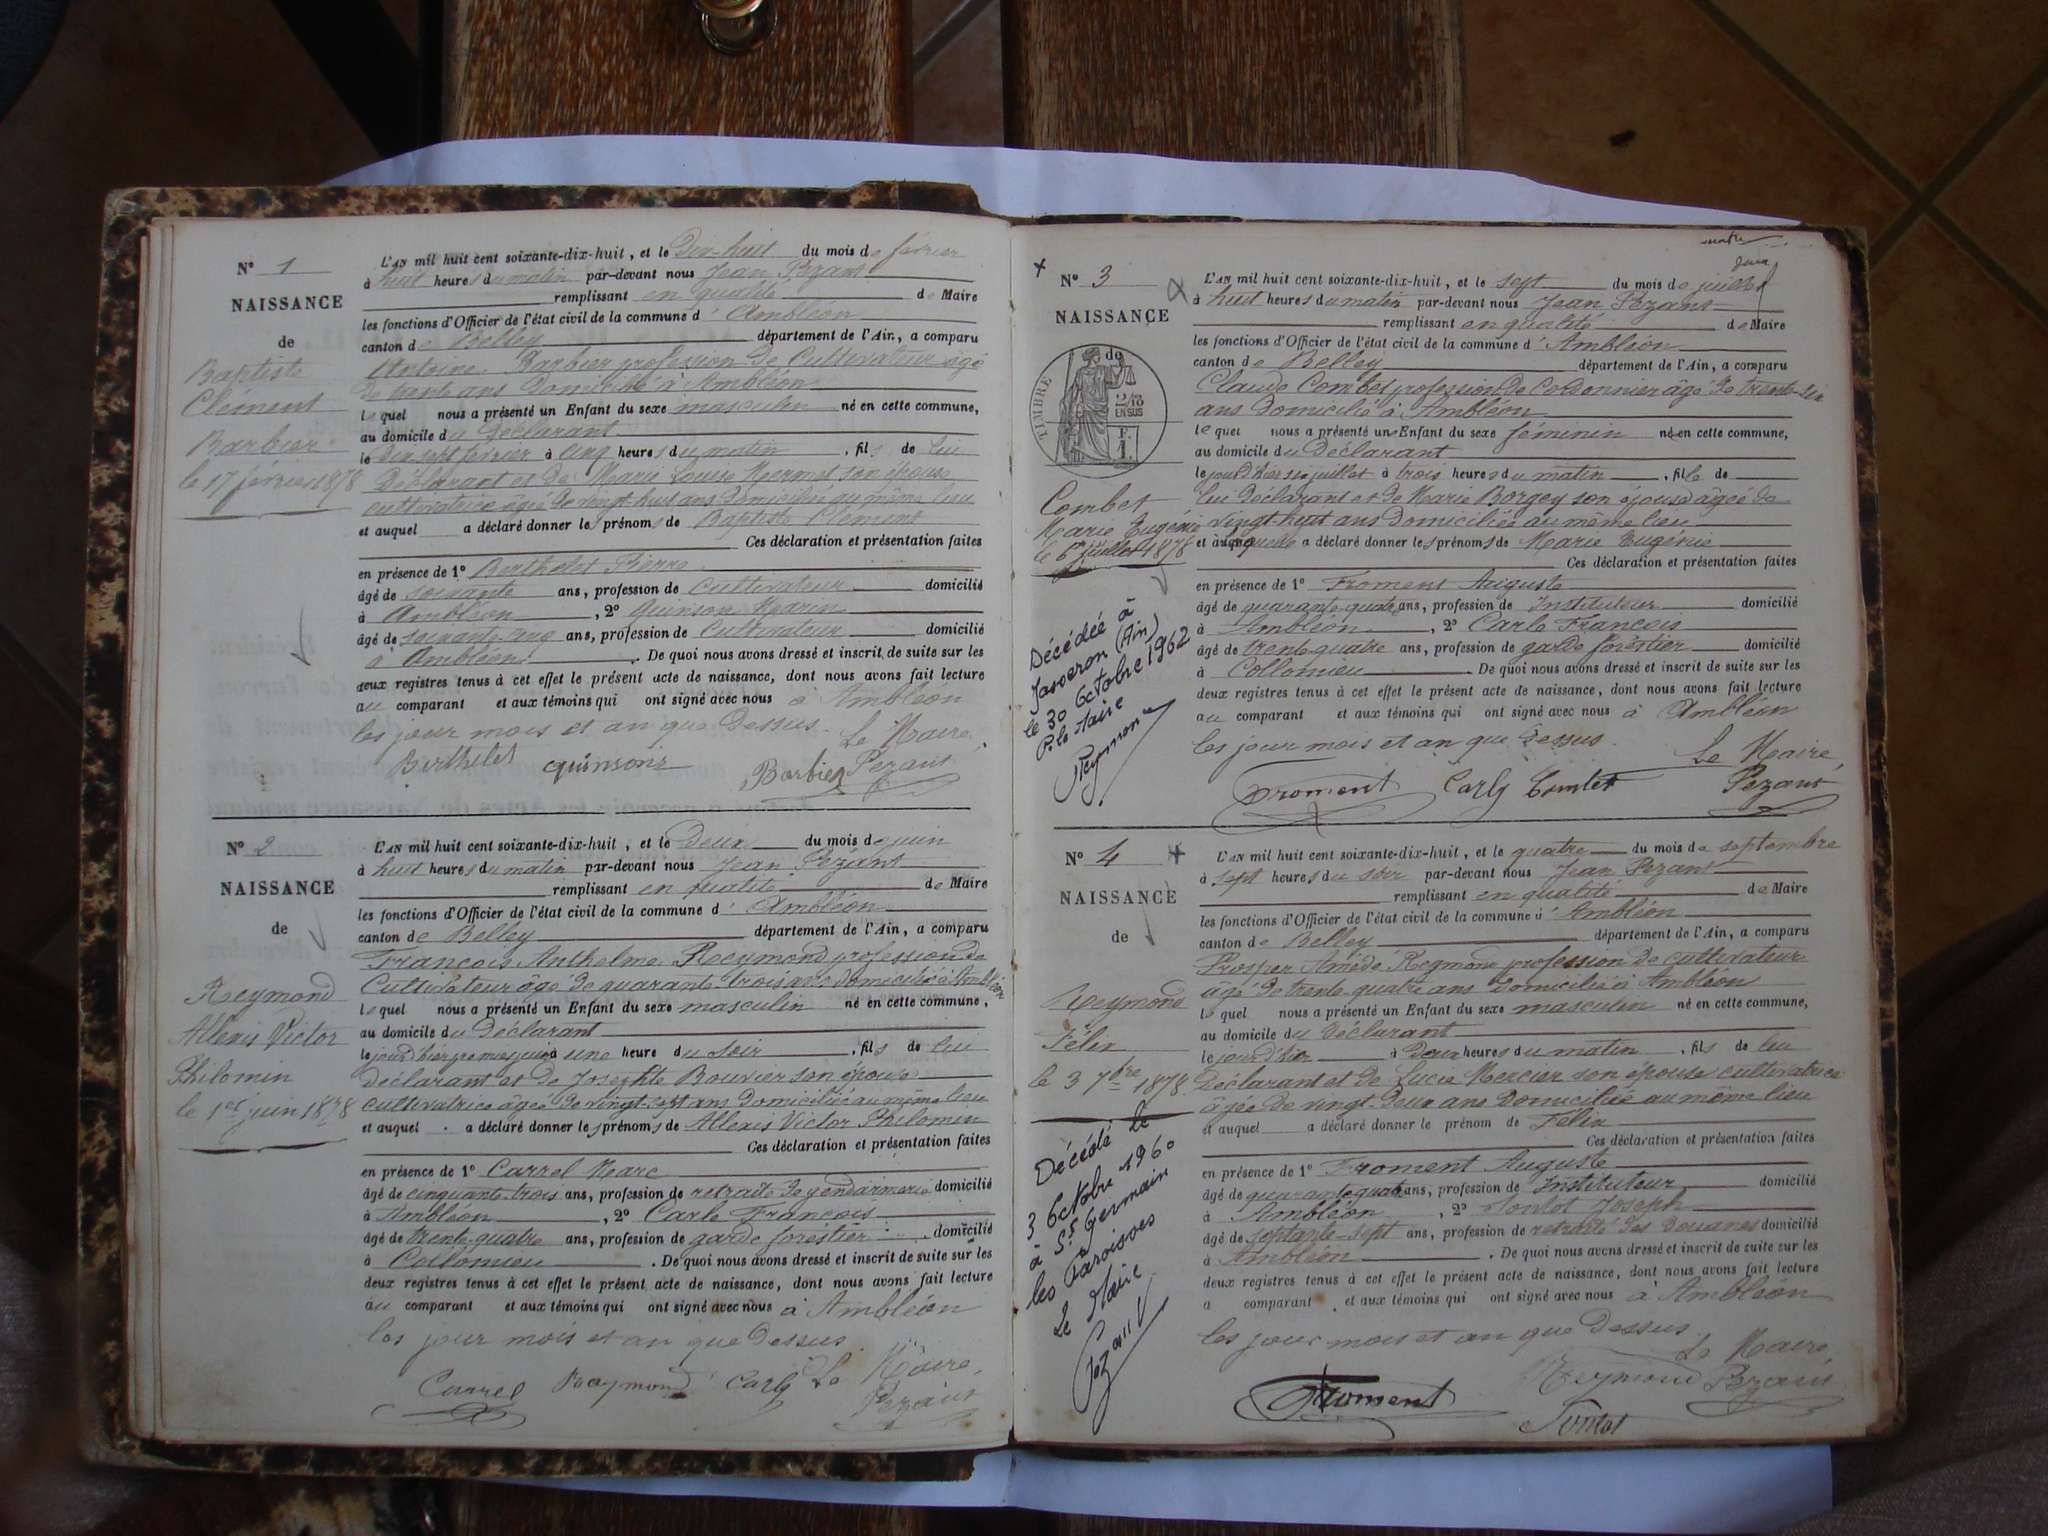 N° 1
NAISSANCE
de
Baptiste
Clément
Barbier
le 17 février 1878
L'AN mil huit cent soixante-dix-huit, et le Dix-huit du mois de février
à huit heures du matin par-devant nous Jean Pezant
remplissant en qualité de Maire
les fonctions d'Officier de l'état civil de la commune d'Ambléon
canton de Belley département de l'Ain, a comparu
Antoine Barbier profession de Cultivateur âgé
de trente ans domicilié à Ambléon
lequel nous a présenté un Enfant du sexe masculin né en cette commune,
au domicile du Déclarant
le dix sept février à cinq heures du matin, fils de lui
Déclarant et de Marie Louise Mermet son épouse
cultivatrice âgée de vingt huit ans domiciliée au même lieu
et auquel a déclaré donner les prénoms de Baptiste Clément
Ces déclaration et présentation faites
en présence de 1° Berthelet Pierre
âgé de soixante ans, profession de Cultivateur domicilié
à Ambléon, 2° Quinson Marin
âgé de soixante cinq ans, profession de Cultivateur domicilié
à Ambléon. De quoi nous avons dressé et inscrit de suite sur les
deux registres tenus à cet effet le présent acte de naissance, dont nous avons fait lecture
au comparant et aux témoins qui ont signé avec nous à Ambléon
les jour mois et an que dessus. Le Maire,
Berthelet quinson Barbier Pezant
N° 2
NAISSANCE
de
Reymond
Allexis Victor
Philomin
le 1er juin 1878
L'AN mil huit cent soixante-dix-huit, et le Deux du mois de juin
à huit heures du matin par-devant nous Jean Pezant
remplissant en qualité de Maire
les fonctions d'Officier de l'état civil de la commune d'Ambléon
canton de Belley département de l'Ain, a comparu
François Anthelme Reymond profession de
Cultivateur âgé de quarante trois ans domicilié à Ambléon
lequel nous a présenté un Enfant du sexe masculin né en cette commune,
au domicile du Déclarant
le jour d'hier premier juin à une heure du soir, fils de lui
déclarant et de Josephte Bouvier son épouse
cultivatrice âgée de vingt-sept ans domiciliée au même lieu
et auquel a déclaré donner les prénoms de Allexis Victor Philomin
Ces déclaration et présentation faites
en présence de 1° Carrel Marc
âgé de cinquante-trois ans, profession de retraité de gendarmerie domicilié
à Ambléon, 2° Carle François
âgé de trente-quatre ans, profession de garde forestier domicilié
à Collomieu. De quoi nous avons dressé et inscrit de suite sur les
deux registres tenus à cet effet le présent acte de naissance, dont nous avons fait lecture
au comparant et aux témoins qui ont signé avec nous à Ambléon
les jour mois et an que dessus.
Carrel Reymond Carle Le Maire,
Pezant
N° 3
NAISSANCE
de
TIMBRE
EN SUS
F.
1.
Combet
Marie Eugénie
le 6 juillet 1878
Décédée à
Jasseron (Ain)
le 30 Octobre 1962
P. le Maire
Reymond
L'AN mil huit cent soixante-dix-huit, et le sept du mois de juillet
à huit heures du matin par-devant nous Jean Pezant
remplissant en qualité de Maire
les fonctions d'Officier de l'état civil de la commune d'Ambléon
canton de Belley département de l'Ain, a comparu
Claude Combet profession de Cordonnier âgé de trente-six
ans domicilié à Ambléon
lequel nous a présenté un Enfant du sexe féminin né en cette commune,
au domicile du Déclarant
le jour d'hier six juillet à trois heures du matin, fille de
lui Déclarant et de Marie Borgey son épouse âgée de
vingt-huit ans domiciliée au même lieu
et à laquelle a déclaré donner les prénoms de Marie Eugénie
Ces déclaration et présentation faites
en présence de 1° Froment Auguste
âgé de quarante-quatre ans, profession de Instituteur domicilié
à Ambléon, 2° Carle François
âgé de trente-quatre ans, profession de garde forestier domicilié
à Collomieu. De quoi nous avons dressé et inscrit de suite sur les
deux registres tenus à cet effet le présent acte de naissance, dont nous avons fait lecture
au comparant et aux témoins qui ont signé avec nous à Ambléon
les jour mois et an que dessus. Le Maire,
Froment Carle Combet Pezant
N° 4
NAISSANCE
de
Reymond
Félix
le 3 7bre 1878
Décédé le
3 Octobre 1960
à St Germain
les Paroisses
Le Maire
L'AN mil huit cent soixante-dix-huit, et le quatre du mois de septembre
à sept heures du soir par-devant nous Jean Pezant
remplissant en qualité de Maire
les fonctions d'Officier de l'état civil de la commune d'Ambléon
canton de Belley département de l'Ain, a comparu
Prosper Amédé Reymond profession de cultivateur
âgé de trente-quatre ans domicilié à Ambléon
lequel nous a présenté un Enfant du sexe masculin né en cette commune,
au domicile du Déclarant
le jour d'hier à Deux heures du matin, fils de lui
Déclarant et de Lucie Mercier son épouse cultivatrice
âgée de vingt-deux ans domiciliée au même lieu
et auquel a déclaré donner le prénom de Félix
Ces déclaration et présentation faites
en présence de 1° Froment Auguste
âgé de quarante quatre ans, profession de Instituteur domicilié
à Ambléon, 2° Tontot Joseph
âgé de septante-sept ans, profession de retraité des Douanes domicilié
à Ambléon. De quoi nous avons dressé et inscrit de suite sur les
deux registres tenus à cet effet le présent acte de naissance, dont nous avons fait lecture
a comparant et aux témoins qui ont signé avec nous à Ambléon
les jour mois et an que dessus. Le Maire,
Froment Reymond Pezant
Tontot